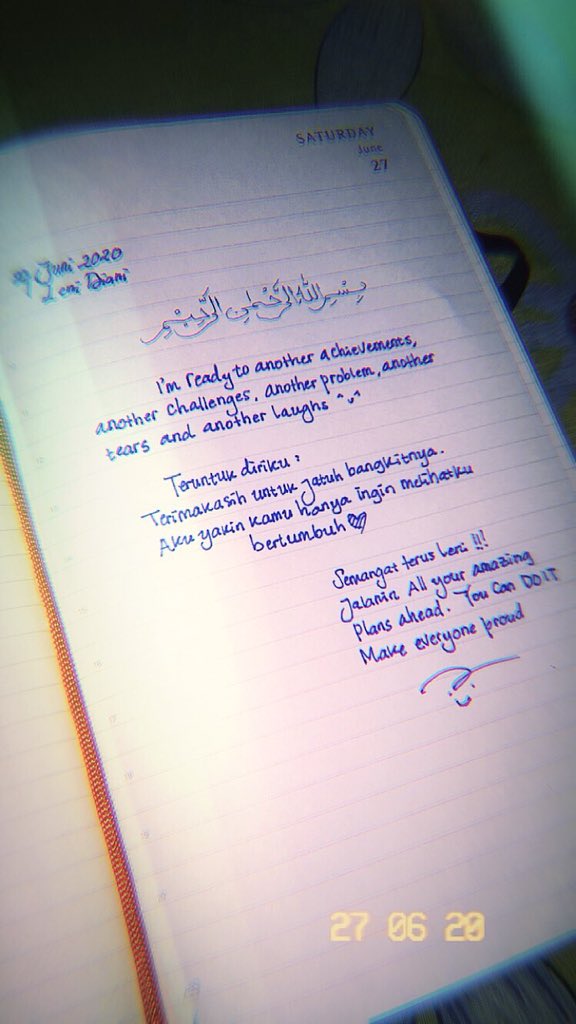 SATURDAY
June
27
27 Juni 2020
Leni Diani
بِسْمِ اللهِ الرَّحْمٰنِ الرَّحِيْمِ
I'm ready to another achievements,
another challenges, another problem, another
tears and another laughs ^◡^
Teruntuk diriku :
Terimakasih untuk jatuh bangkitnya.
Aku yakin kamu hanya ingin melihatku
bertumbuh ♡
Semangat terus Leni !!!
Jalanin All your amazing
plans ahead. You Can DO IT
Make everyone proud
27 06 20